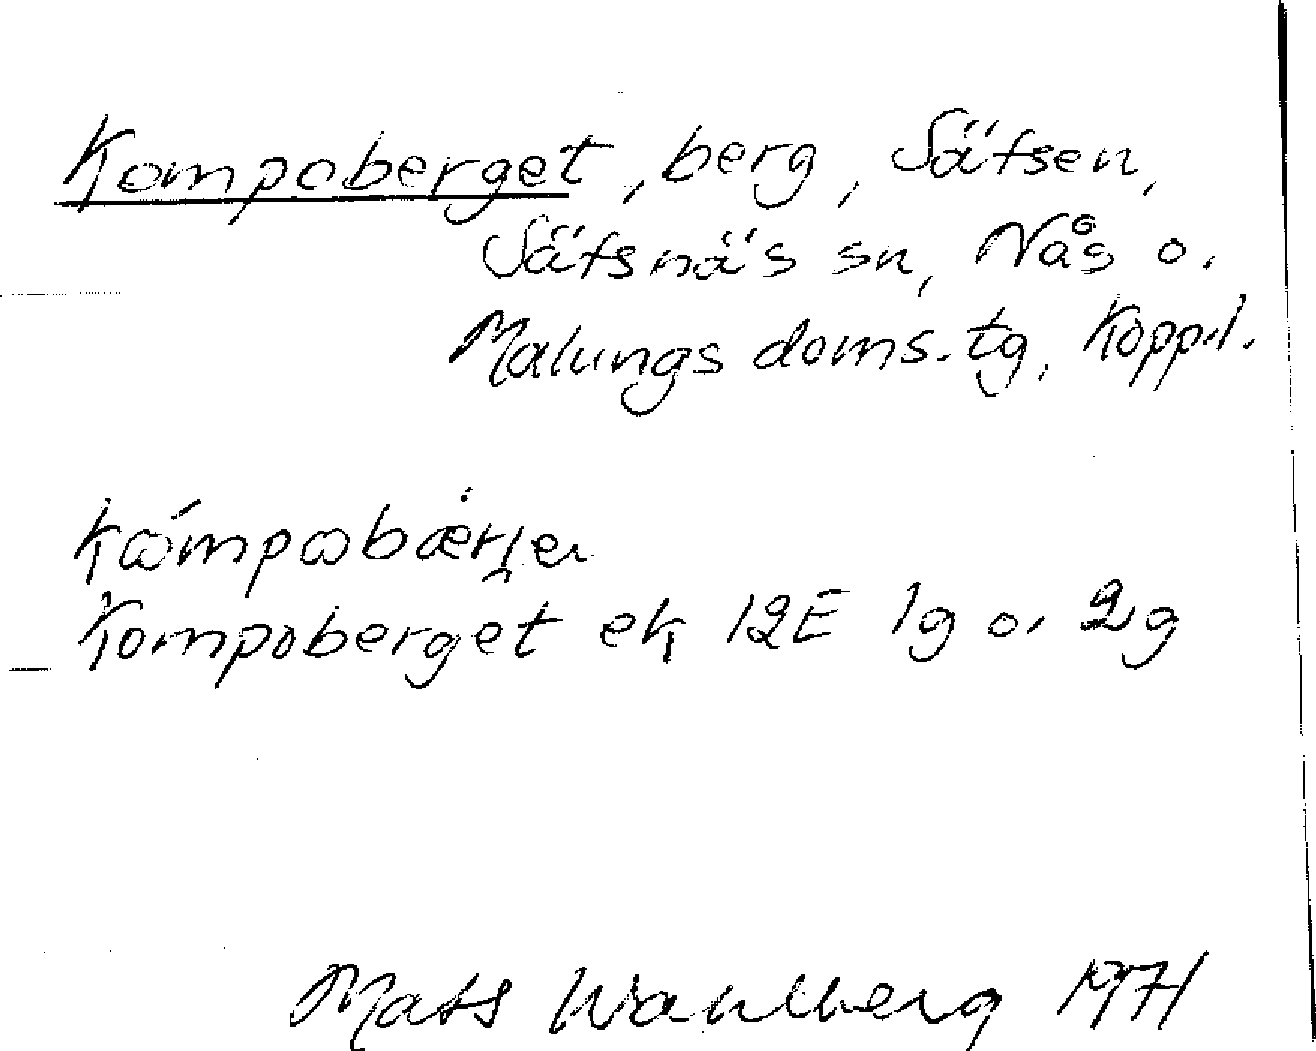 Kompoberget, berg, Säfsen,
Säfsnäs sn, Nås o.
Malungs doms.tg, Kopp.l.
Kompoberget ek 12E 1g o. 2g
Mats Wahlberg 1971